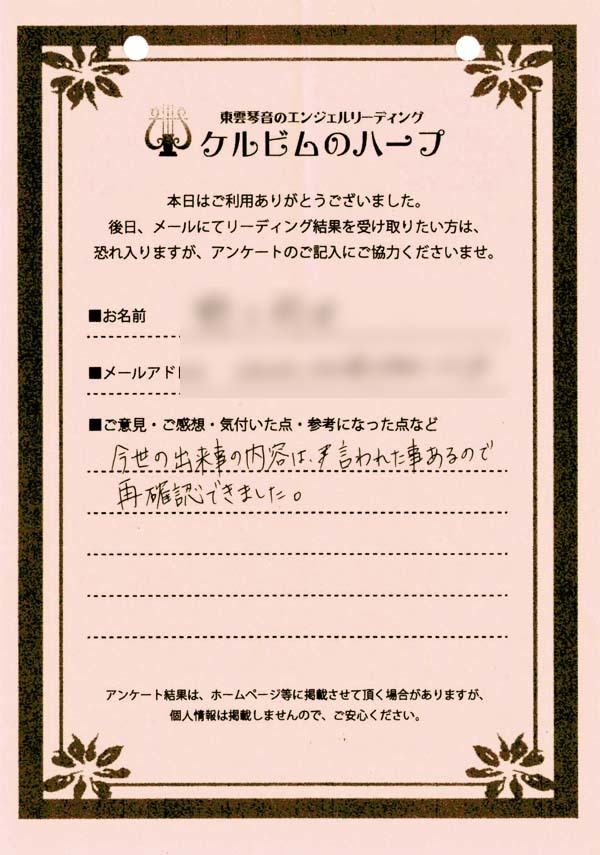 東雲琴音のエンジェルリーディング
ケルビムのハープ
本日はご利用ありがとうございました。
後日、メールにてリーディング結果を受け取りたい方は、
恐れ入りますが、アンケートのご記入にご協力くださいませ。
■お名前
■メールアド
■ご意見・ご感想・気付いた点・参考になった点など
今世の出来事の内容は、言われた事あるので
再確認できました。
アンケート結果は、ホームページ等に掲載させて頂く場合がありますが、
個人情報は掲載しませんので、ご安心ください。